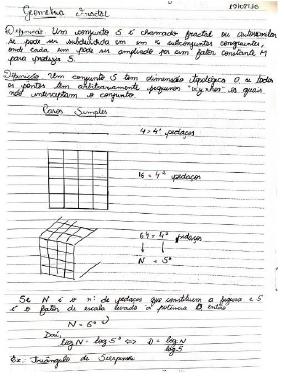 Geometria Fractal
Definição: Um conjunto S é chamado fractal ou autossimilar
se pode ser subdividido em um n° subconjuntos congruentes,
onde cada um pode ser ampliado por um fator constante M
para produzir S.
Definição: Um conjunto S tem dimensão topológica 0 se todos
os pontos têm arbitrariamente pequenos os quais
não interceptam o conjunto.
Casos Simples
4 = 4¹ pedaços
16 = 4² pedaços
64 = 4³ pedaços
↓ ↓
N = S^D
Se N é o n° de pedaços que constituem a figura e S
é o fator de escala levado à potência D então
N = S^D
Daí,
log N = log S^D ⟺ D = log N / log S
Ex.: Triângulo de Sierpinski